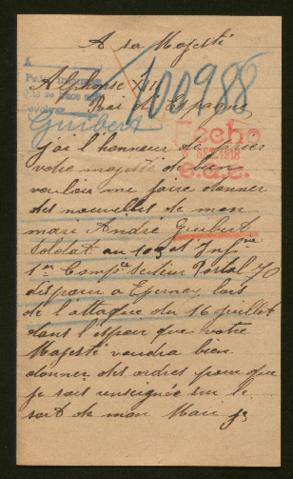 A sa Majesté
Alphonse XIII
Roi de Espagne
100988
Guibert
Fecho
SET. 1918
j'ai l'honneur de prier
votre majesté de bien
vouloir me faire donner
des nouvelles de mon
mari André Guibert
Soldat au 103 et Infrie
1re Compe Secteur Postal 70
disparu a Epernay lors
de l'attaque du 16 juillet
dans l'espoir que votre
Majesté voudra bien
donner des ordres pour que
je sois renseignée sur le
sort de mon Mari je